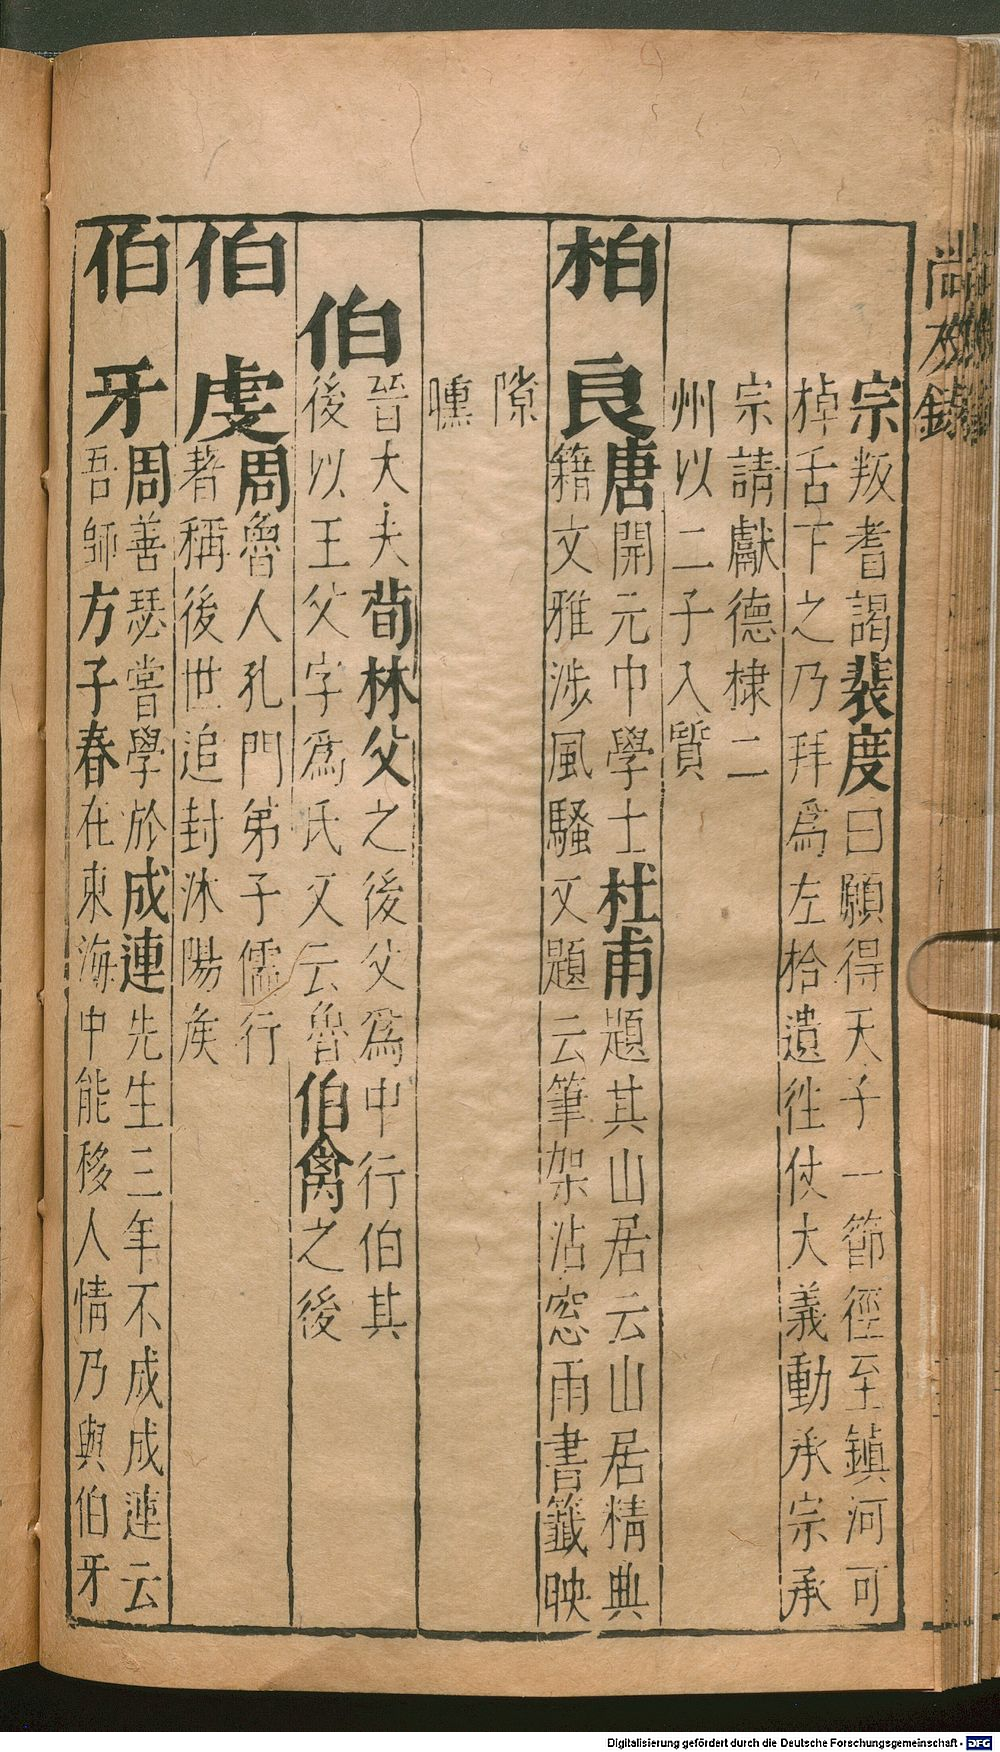 宗叛耆謁裴度曰願得天子一節徑至鎮河可
棹舌下之乃拜爲左拾遺徃仗大義動承宗承
宗請獻德棣二
州以二子入質
柏良唐開元中學士杜甫題其山居云山居精典
籍文雅涉風騷又題云筆架沾窓雨書籤映
隙
曛
伯晉大夫荀林父之後父爲中行伯其
後以王父字爲氏又云魯伯禽之後
伯虔周魯人孔門弟子儒行
著稱後世追封沐陽矦
伯牙周善瑟嘗學於成連先生三年不成成連云
吾師方子春在東海中能移人情乃與伯牙
尚友錄
Digitalisierung gefördert durch die Deutsche Forschungsgemeinschaft - DFG